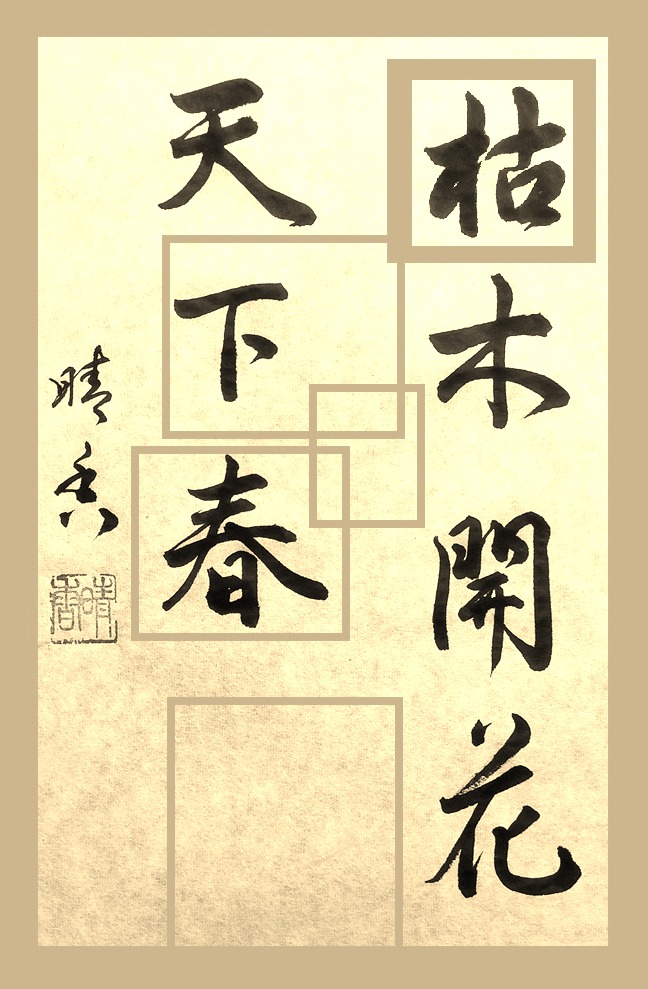 枯木開花
天下春
晴香
晴香